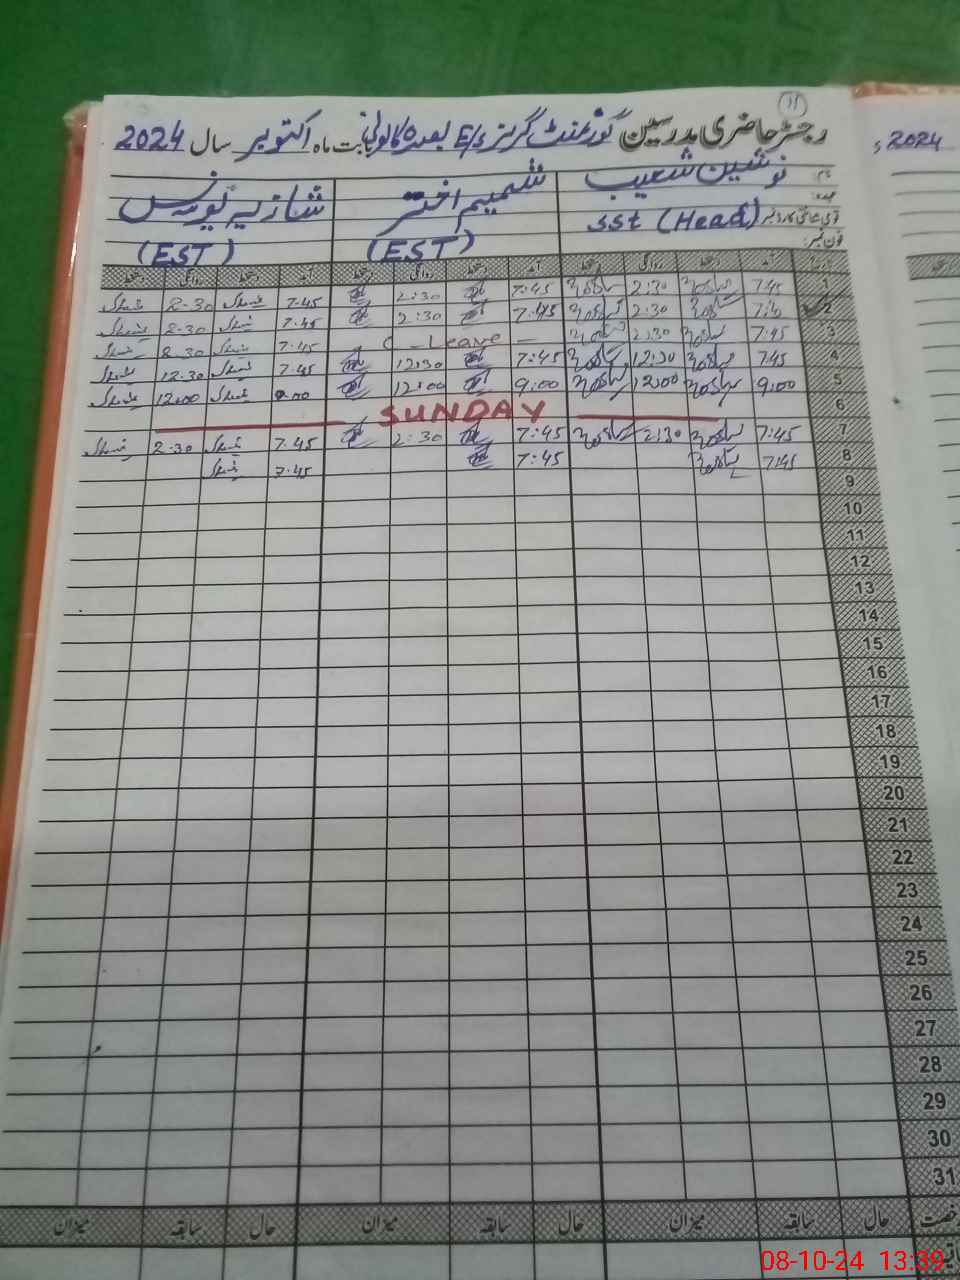 ۱۱
رجسٹر حاضری مدرسین گورنمنٹ گرلز E/S بابت ماہ اکتوبر سال 2024
2024
نام نوشین شعیب شمیم اختر شازیہ یونس
عہدہ
شناختی کارڈ نمبر SST (Head) (EST) (EST)
فون نمبر
آمد دستخط روانگی دستخط آمد دستخط روانگی دستخط آمد دستخط روانگی دستخط
1 7:45 2:30 7:45 2:30 7.45 2.30
2 7:45 2:30 7:45 2:30 7.45 2.30
3 7:45 2:30 C - Leave - 7.45 2.30
4 7:45 12:30 7:45 12:30 7.45 12.30
5 9:00 12:00 9:00 12:00 9.00 12:00
6 SUNDAY
7 7:45 2:30 7:45 2:30 7.45 2.30
8 7:45 7:45 7.45
9
10
11
12
13
14
15
16
17
18
19
20
21
22
23
24
25
26
27
28
29
30
31
رخصت حال سابقہ میزان حال سابقہ میزان حال سابقہ میزان
08-10-24 13:39